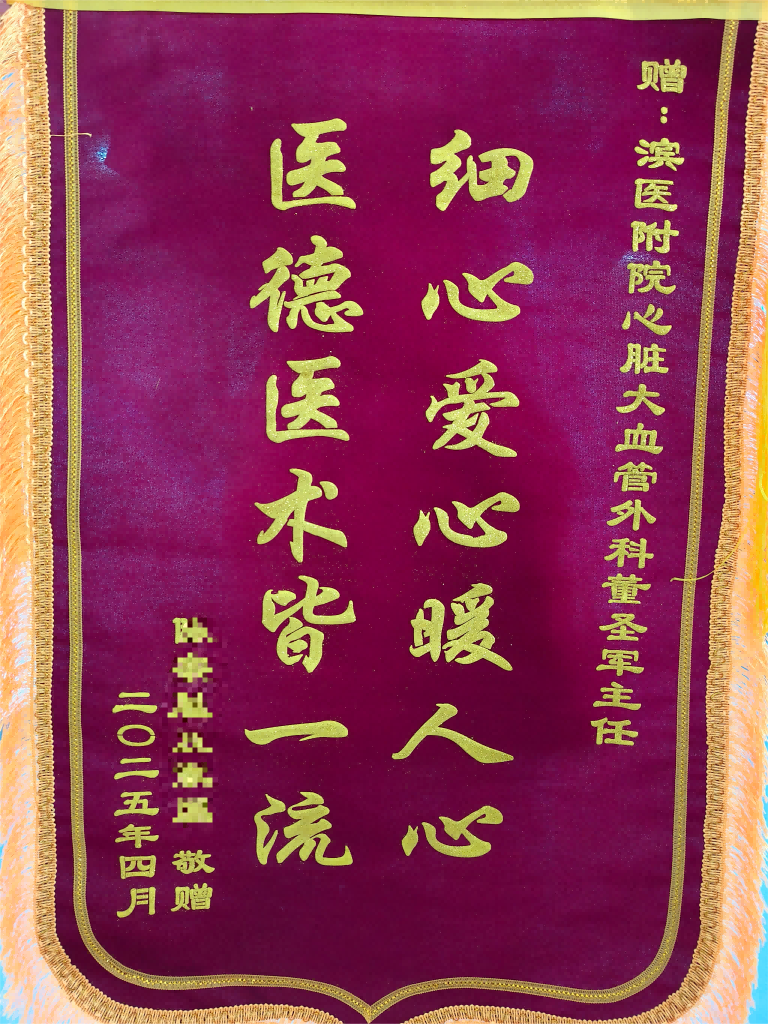 赠：滨医附院心脏大血管外科董圣军主任
细心爱心暖人心
医德医术皆一流
敬赠
二〇二五年四月